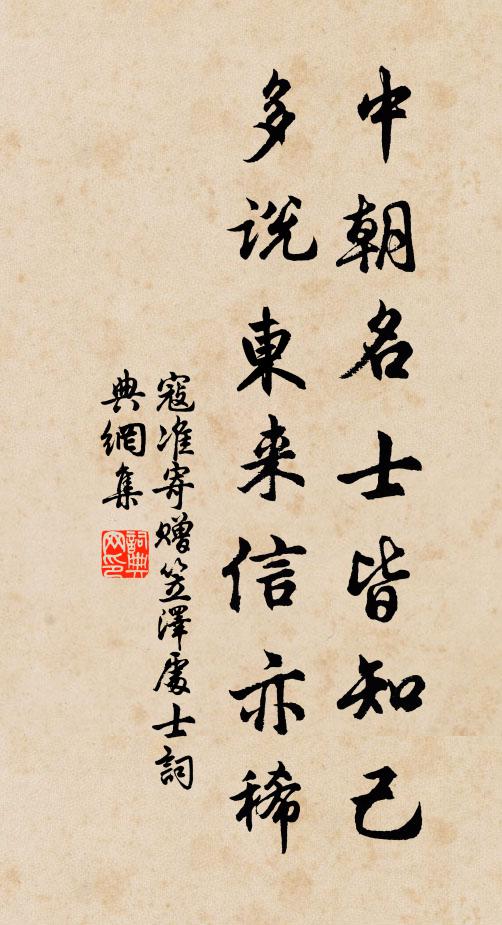 中朝名士皆知己
多说東来信亦稀
寇准寄赠笠澤處士詞
典網集
詞典网印